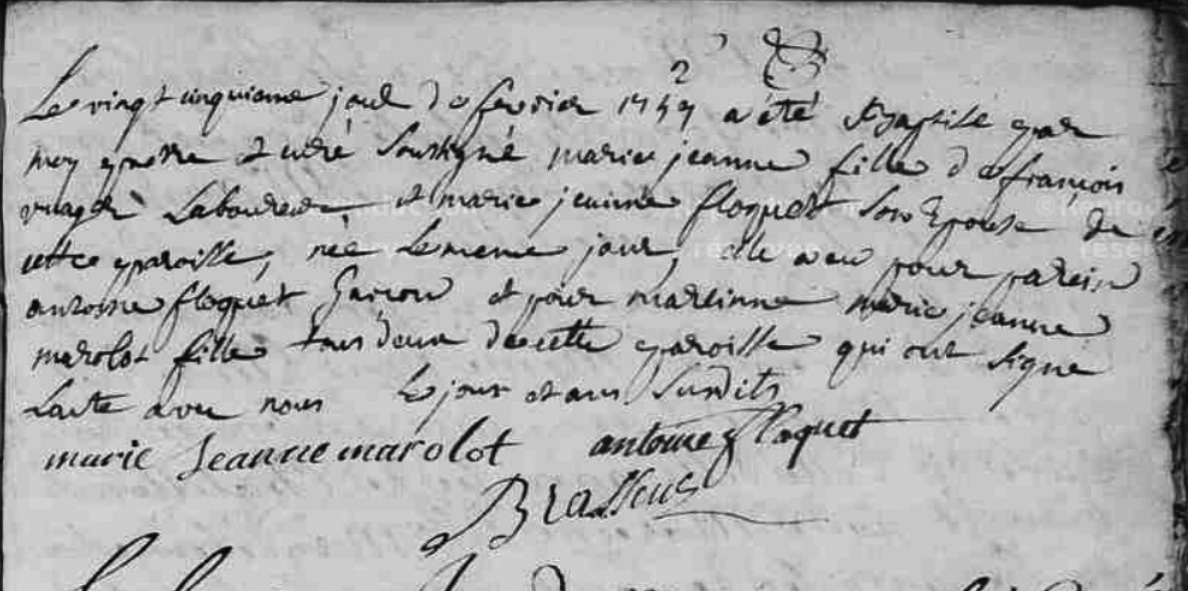 2
Le vingt cinquieme jour de fevrier 1749 a été Baptisée par
moy pretre et curé soussigné marie jeanne fille de françois
laboureur et marie jeanne floquet son Epouse de
cette paroisse, née le meme jour, elle a eu pour parein
antoine floquet Garçon et pour mareinne marie jeanne
marolot fille tous deux de cette paroisse qui ont signé
lacte avec nous le jour et an susdits
marie Jeanne marolot antoine floquet